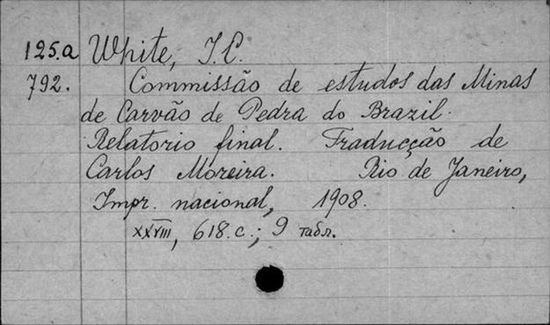 125.a White, I. C.
792. Commissão de estudos das Minas
de Carvão de Pedra do Brazil.
Relatorio final. Traducção de
Carlos Moreira. Rio de Janeiro,
Impr. nacional, 1908.
XXVIII, 618.c.; 9 табл.